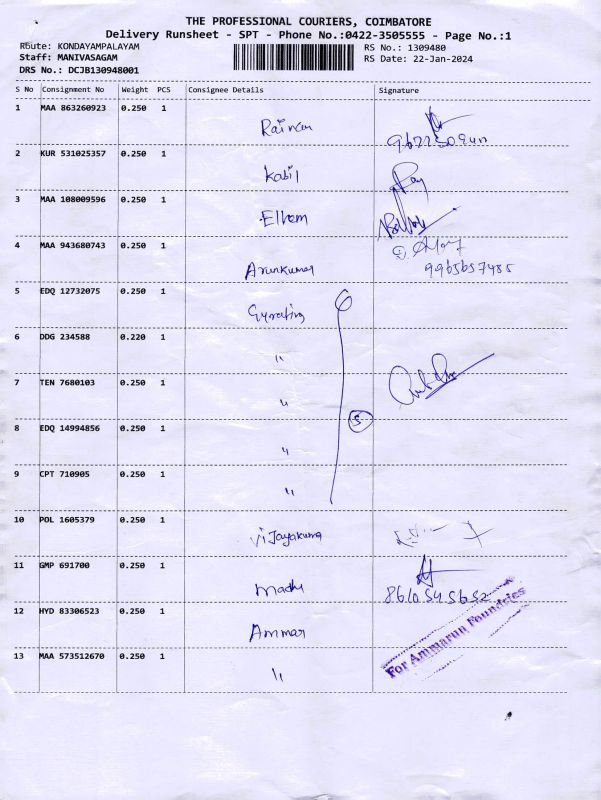 THE PROFESSIONAL COURIERS, COIMBATORE
Delivery Runsheet - SPT - Phone No.:0422-3505555 - Page No.:1
Route: KONDAYAMPALAYAM
RS No.: 1309480
Staff: MANIVASAGAM
RS Date: 22-Jan-2024
DRS No.: DCJB130948001
S No Consignment No Weight PCS Consignee Details Signature
1 MAA 863260923 0.250 1
2 KUR 531025357 0.250 1 Kabil
3 MAA 108009596 0.250 1
4 MAA 943680743 0.250 1 Arunkumar
9965657485
5 EDQ 12732075 0.250 1
6 DDG 234588 0.220 1 "
7 TEN 7680103 0.250 1 "
8 EDQ 14994856 0.250 1 "
5
9 CPT 710905 0.250 1 "
10 POL 1605379 0.250 1 Vijayakuma
11 GMP 691700 0.250 1 Madhu
8610545652
12 HYD 83306523 0.250 1 Ammar
For Ammarun Foundries
13 MAA 573512670 0.250 1 "